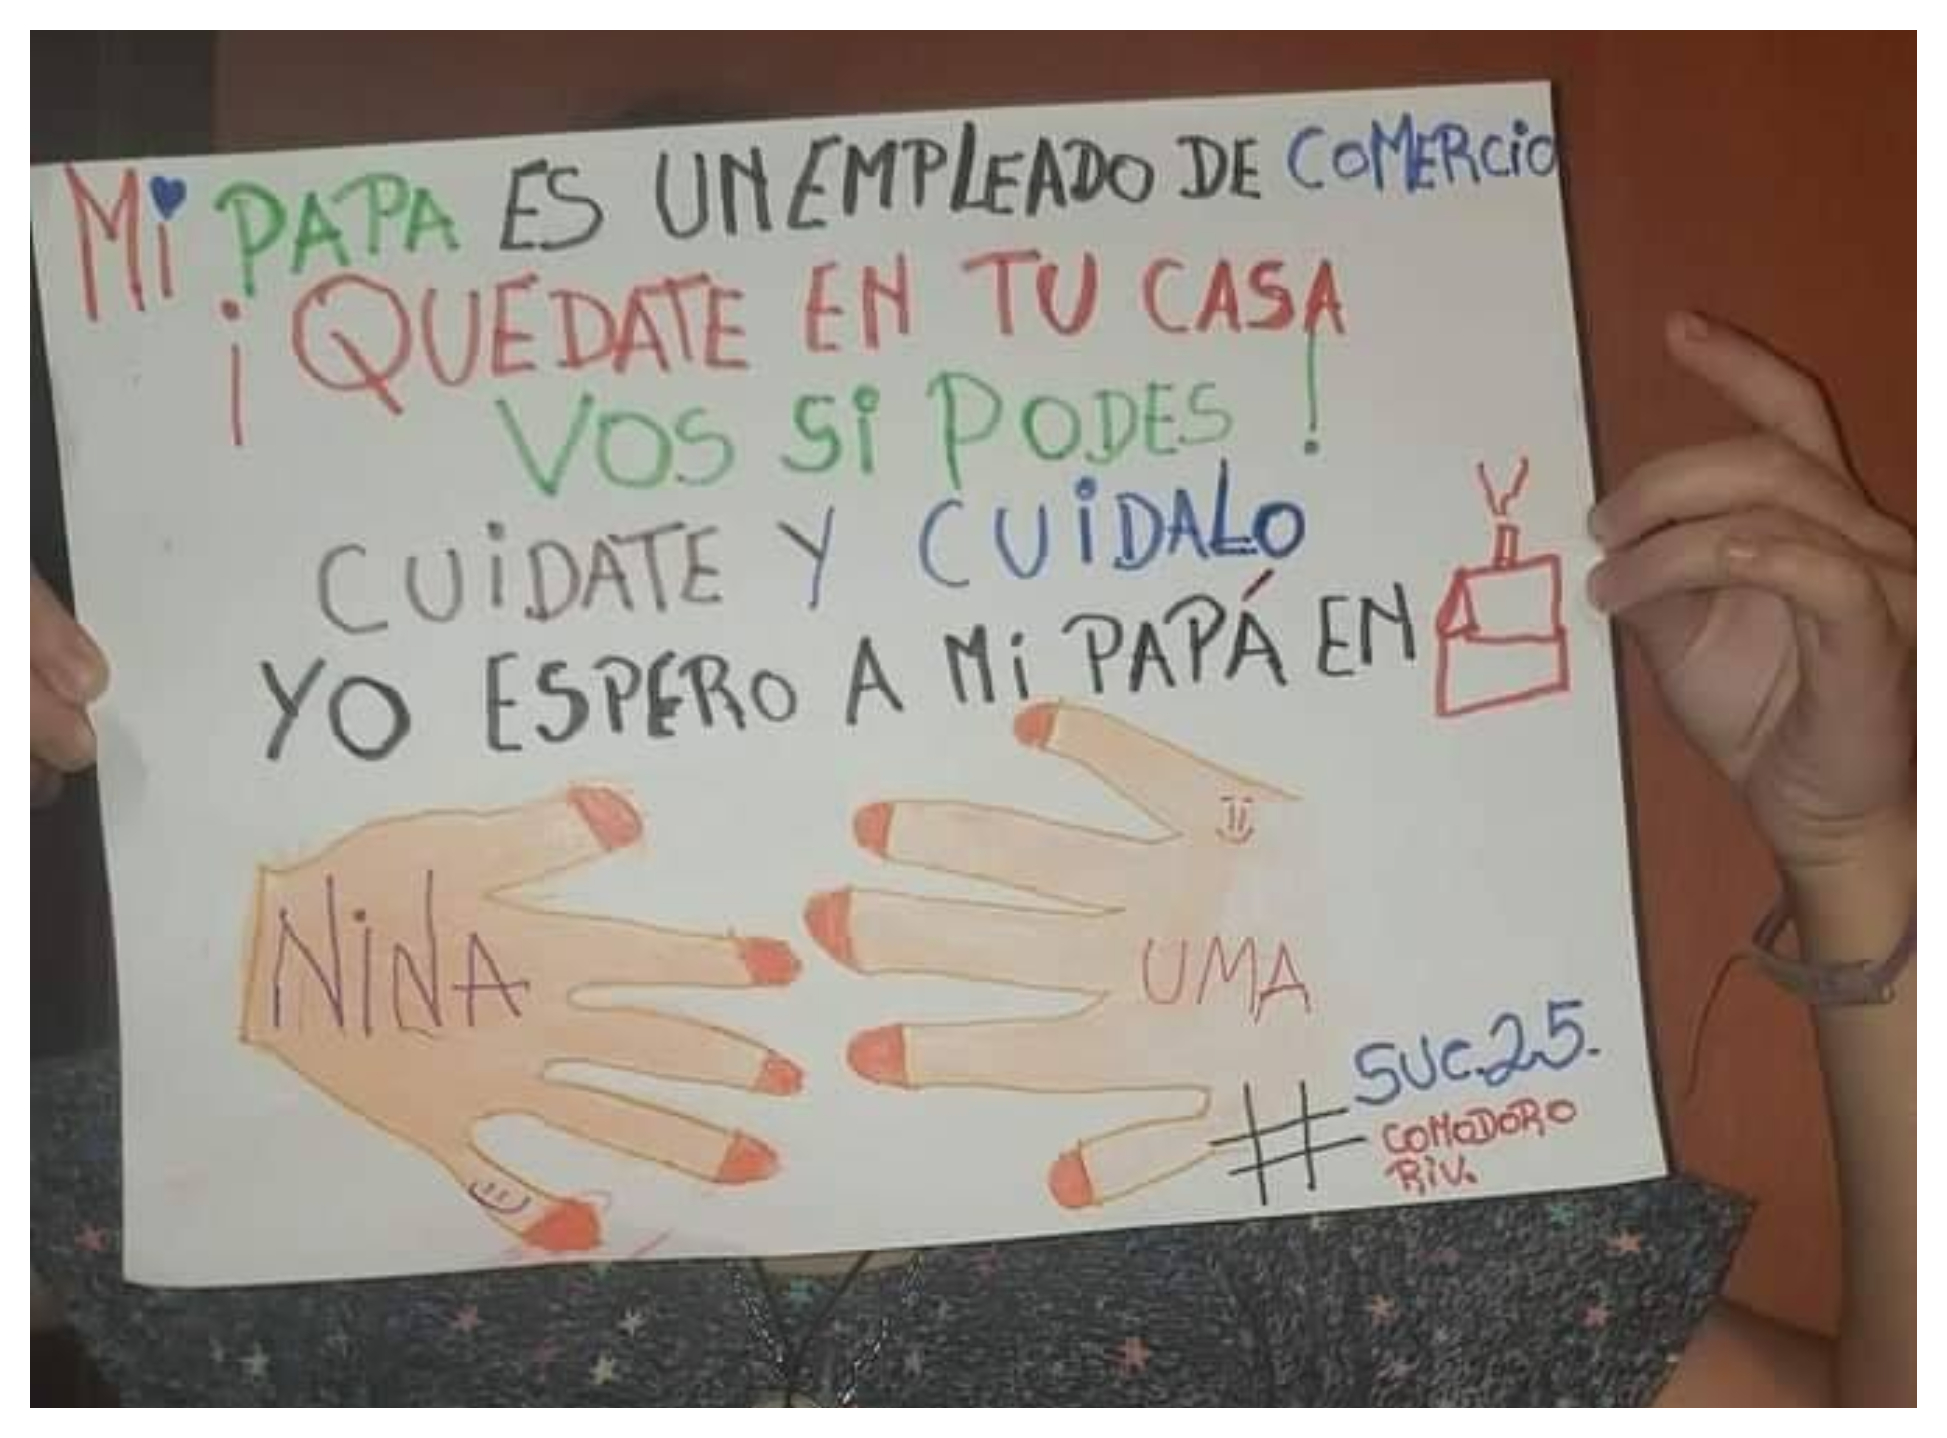 Mi PAPA ES UN EMPLEADO DE COMERCIO
¡QUEDATE EN TU CASA
VOS SI PODES!
CUIDATE Y CUIDALO
YO ESPERO A Mi PAPÁ EN
NINA
UMA
# SUC.25.
COMODORO
RIV.